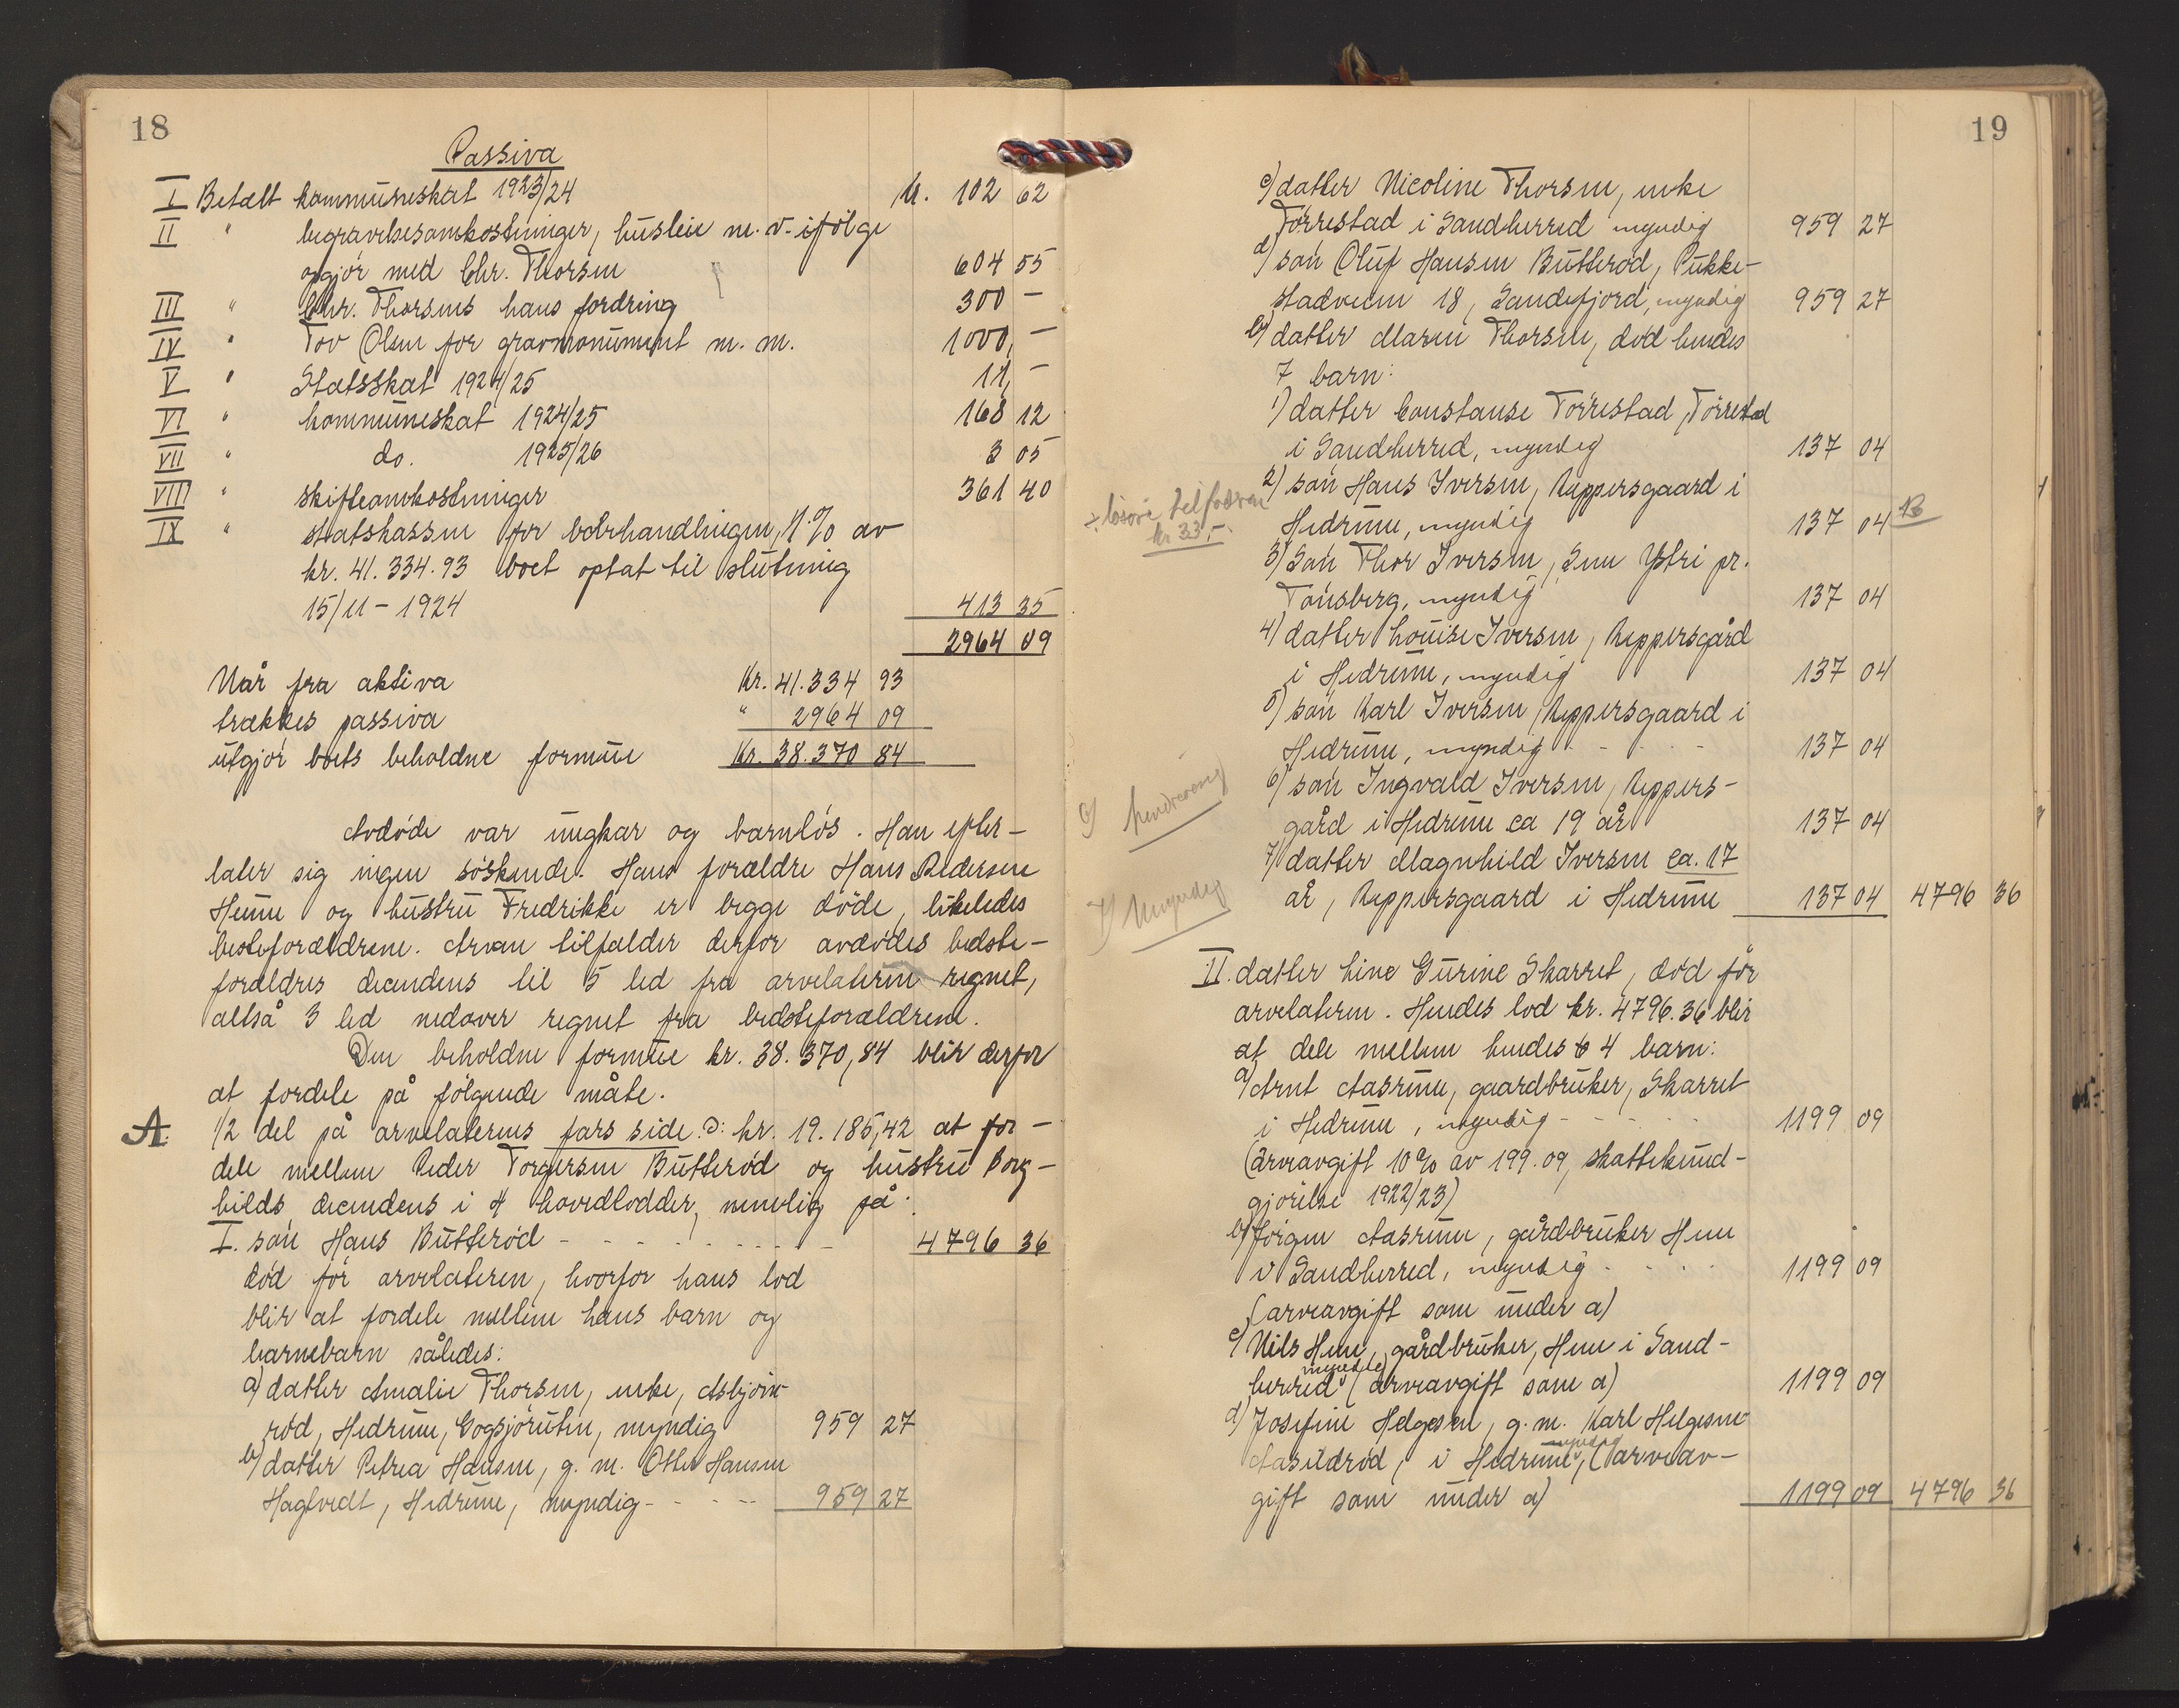 18
Passiva
I Betalt kommuneskat 1923/24 kr. 102 62
II " begravelsesomkostninger, husleie m.v. ifölge
opgjör med Chr. Thorsen 604 55
III " Chr. Thorsens hans fordring 300 -
IV " Tov Olsen for gravmonument m.m. 1000, -
V " Statsskat 1924/25 11, -
VI " kommuneskat 1924/25 168 12
VII " do. 1925/26 3 05
VIII " skifteomkostninger 361 40
IX " statskassen for bobehandlingen, 1% av
kr. 41.334.93 boet optat til slutning
15/11-1924 413 35
2964 09
Når fra aktiva Kr. 41.334 93
trækkes passiva " 2964 09
utgjör boets beholdne formue Kr. 38.370 84
Avdöde var ungkar og barnlös. Han efter-
later sig ingen söskende. Hans forældre Hans Pedersen
Hemu og hustru Fredrikke er begge döde, likeledes
besteforældrene. Arven tilfalder derfor avdödes bedste-
forældres decendens til 5 led fra arvelateren regnet,
altså 3 led nedover regnet fra bedsteforældrene.
Den beholdne formue kr. 38.370,84 blir derfor
at fordele på fölgende måte.
A. 1/2 del på arvelaterens fars side ɔ: kr. 19.185,42 at for-
dele mellem Peder Torgersen Butteröd og hustru Borg-
hilds decendens i 4 hovedlodder, nemlig på:
I. sön Hans Butteröd - - - - - - - - - 4796 36
död för arvelateren, hvorfor hans lod
blir at fordele mellem hans barn og
barnebarn således:
a) datter Amalie Thorsen, enke, Asbjörn-
röd, Hedrum, Gogsjöruten, myndig 959 27
b) datter Petrea Hansen, g.m. Otter Hansen
Hagtvedt, Hedrum, myndig - - - - 959 27
19
c) datter Nicoline Thorsen, enke
Törrestad i Sandherred myndig 959 27
d) sön Oluf Hansen Butteröd, Pukke-
stadveien 18, Sandefjord, myndig 959 27
e) datter Maren Thorsen, död hendes
7 barn:
1) datter Constanse Törrestad, Törrestad
i Sandherred, myndig 137 04
2) sön Hans Iversen, Reppersgaard i
÷ lösöre
kr 33,-
Hedrum, myndig 137 04 B
3) Sön Thor Iversen, Sem Ystri pr.
Tönsberg, myndig 137 04
4) datter Louise Iversen, Reppersgård
i Hedrum, myndig 137 04
5) sön Karl Iversen, Reppersgaard i
Hedrum, myndig - - - - 137 04
6)
6) sön Ingvald Iversen, Reppers-
gård i Hedrum ca 19 år 137 04
7) datter Magnhild Iversen ca. 17
7) Umyndig
år, Reppersgaard i Hedrum 137 04 4796 36
II. datter Line Gurine Skarret, död för
arvelateren. Hendes lod kr. 4796.36 blir
at dele mellem hendes 4 barn:
a) Arnt Aasrum, gaardbruker, Skarret
i Hedrum, myndig - - - - 1199 09
(arveavgift 10% av 199.09, skattekund-
gjörelse 1922/23)
b) Jörgen Aasrum, gårdbruker Hem
i Sandherred, myndig - - - - 1199 09
(arveavgift som under a)
c) Nils Hem, gårdbruker, Hem i Sand-
herred myndig (arveavgift som a) 1199 09
d) Josefine Helgesen, g.m. Karl Helgesen
Aasildröd, i Hedrum, myndig (arveav-
gift som under a) 1199 09 4796 36